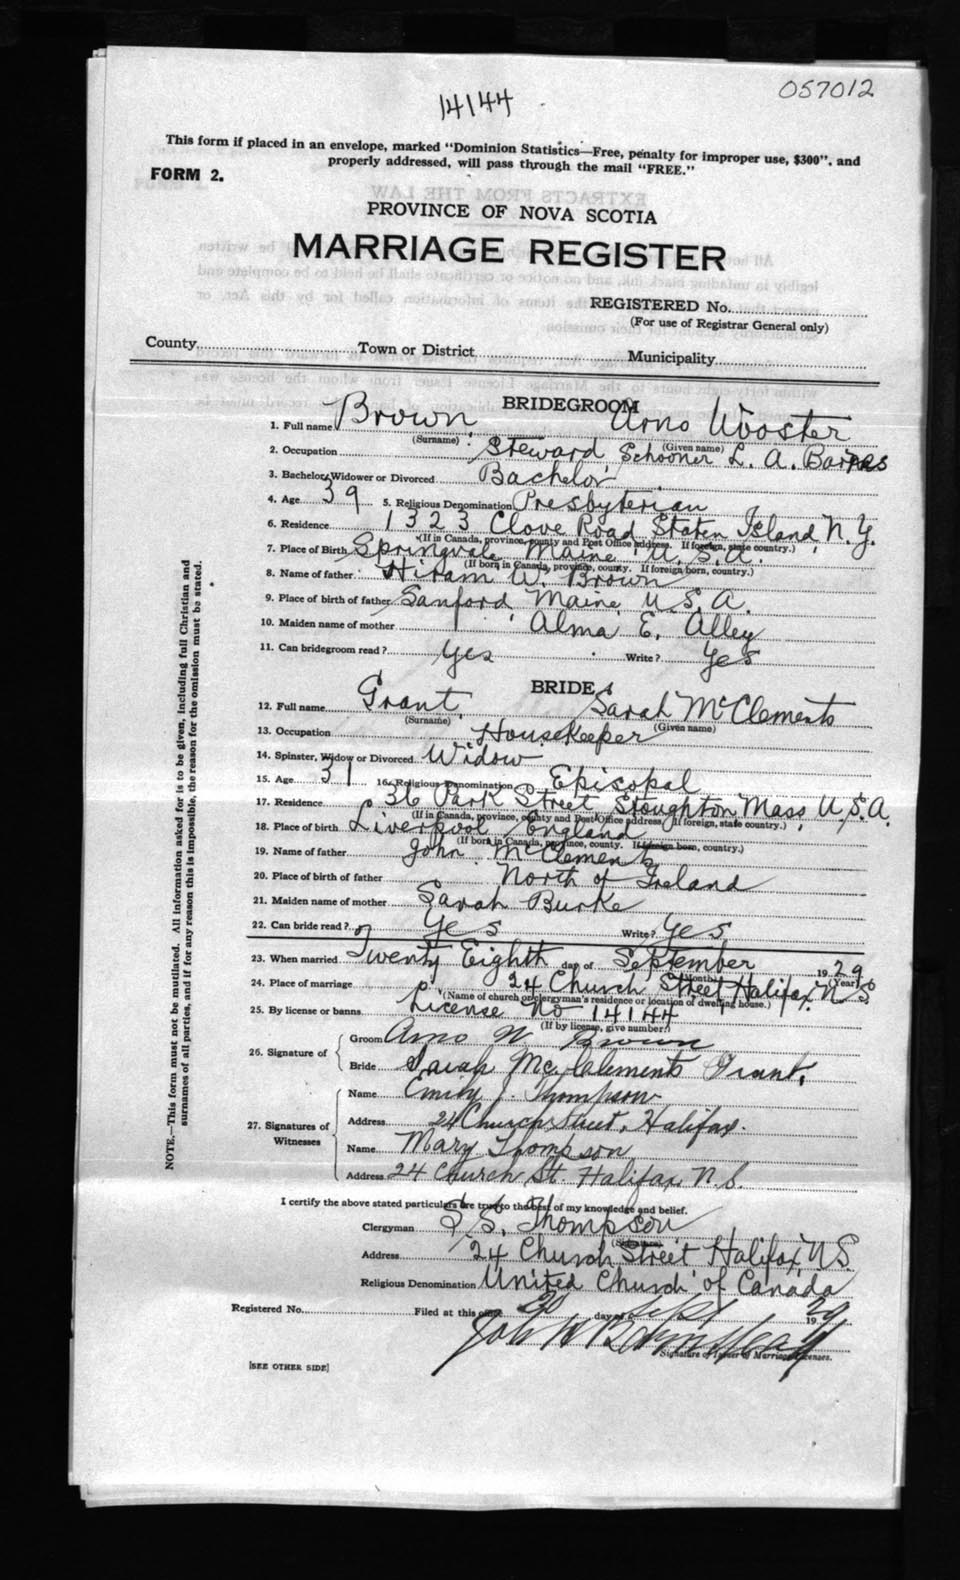 057012
14144
This form if placed in an envelope, marked "Dominion Statistics—Free, penalty for improper use, $300", and
properly addressed, will pass through the mail "FREE."
FORM 2.
PROVINCE OF NOVA SCOTIA
MARRIAGE REGISTER
REGISTERED No.
(For use of Registrar General only)
County Town or District Municipality
BRIDEGROOM
1. Full name Brown Arno Wooster
(Surname) (Given name)
2. Occupation Steward Schooner L. A.
3. Bachelor, Widower or Divorced Bachelor
4. Age 39 5. Religious Denomination Presbyterian
6. Residence 1323 Clove Road Staten Island, N.Y.
(If in Canada, province, county and Post Office address. If foreign, state country.)
7. Place of Birth Springvale Maine U.S.A.
(If born in Canada, province, county. If foreign born, country.)
8. Name of father Hiram W. Brown
9. Place of birth of father Sanford Maine U.S.A.
10. Maiden name of mother Alma E. Alley
11. Can bridegroom read? Yes Write? Yes
BRIDE
12. Full name Grant Sarah McClements
(Surname) (Given name)
13. Occupation Housekeeper
14. Spinster, Widow or Divorced Widow
15. Age 31 16. Religious Denomination Episcopal
17. Residence 36 Park Street Stoughton Mass. U.S.A.
(If in Canada, province, county and Post Office address. If foreign, state country.)
18. Place of birth Liverpool England
(If born in Canada, province, county. If foreign born, country.)
19. Name of father John McClements
20. Place of birth of father North of Ireland
21. Maiden name of mother Sarah Burke
22. Can bride read? Yes Write? Yes
23. When married Twenty Eighth day of September 1929
(Month) (Year)
24. Place of marriage 24 Church Street Halifax N S
(Name of church or clergyman's residence or location of dwelling house.)
25. By license or banns License No 14144
(If by license, give number.)
26. Signature of
Groom Arno W. Brown
Bride Sarah McClements Grant.
27. Signatures of Witnesses
Name Emily J. Thompson
Address 24 Church Street, Halifax.
Name Mary Thompson
Address 24 Church St. Halifax N.S.
I certify the above stated particulars are true to the best of my knowledge and belief.
Clergyman Thompson
(Signature)
Address 24 Church Street Halifax N.S.
Religious Denomination United Church of Canada
Registered No. Filed at this office 30 day of Sept 1929
Signature of Issuer of Marriage Licenses.
[SEE OTHER SIDE]
NOTE.—This form must not be mutilated. All information asked for is to be given, including full Christian and
surnames of all parties, and if for any reason this is impossible, the reason for the omission must be stated.